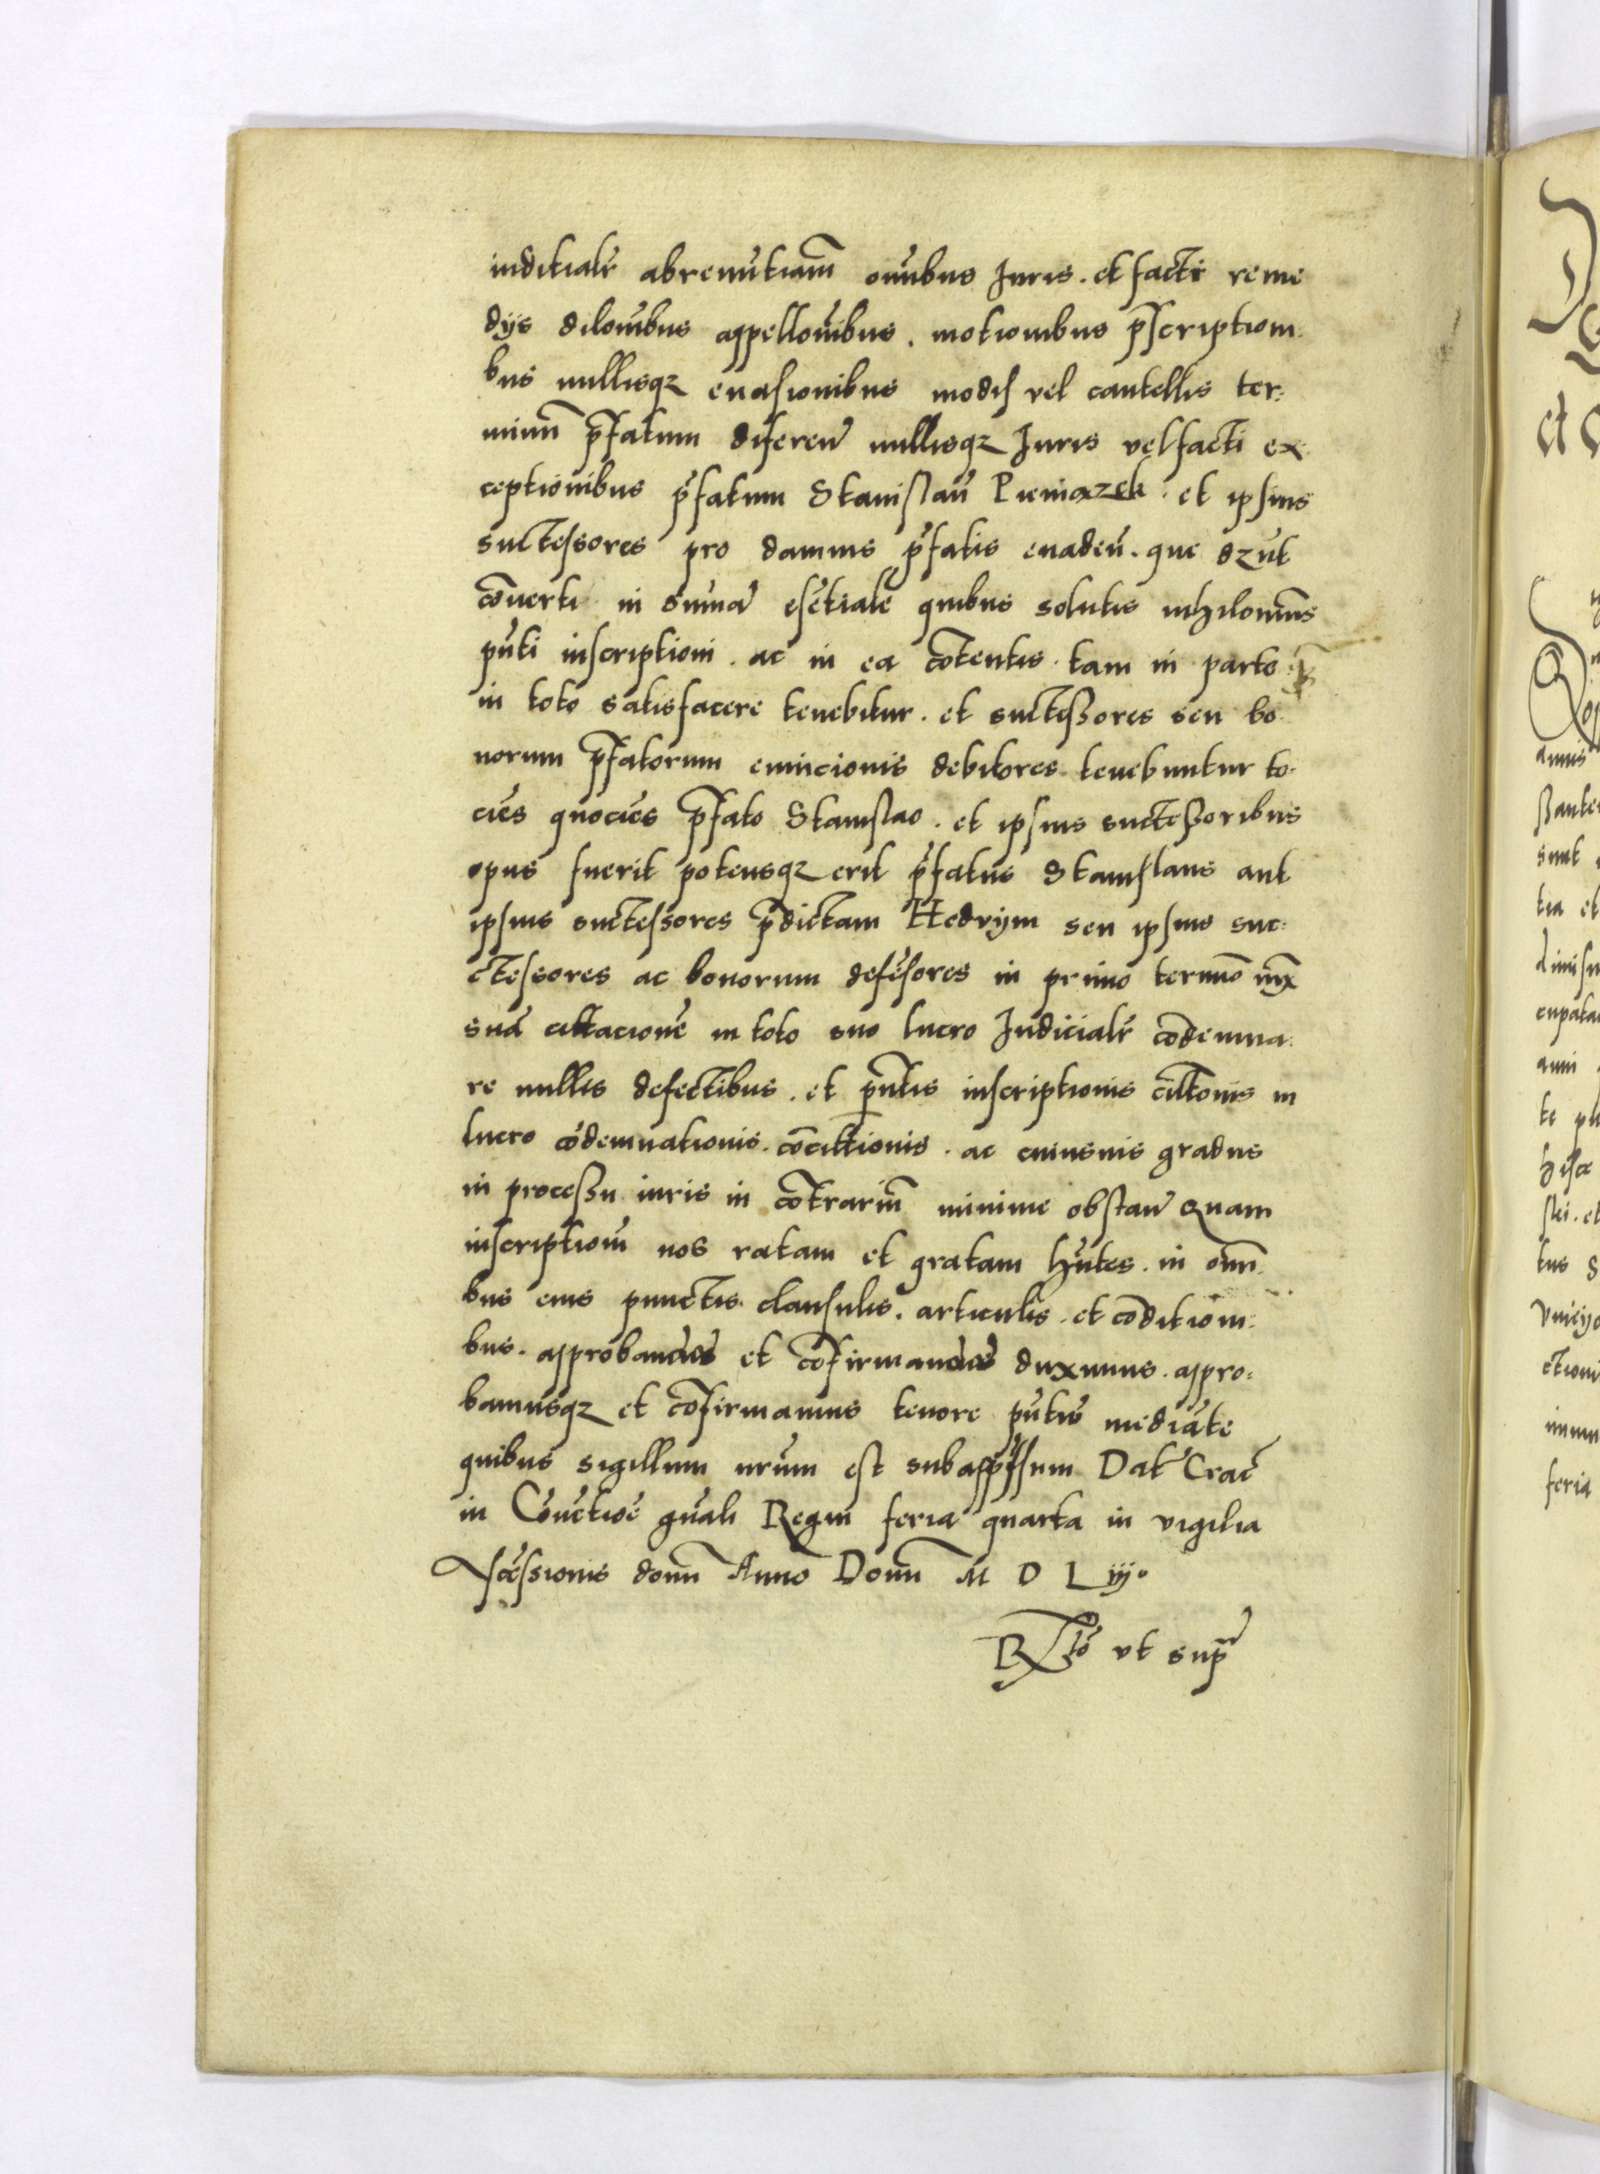 inditialr̃ abrenũtiam̃ om̃ibus Juris . et facti reme
dys dilom̃ibus appellom̃ibus . motionibus p̃scriptioni
bus nullisqȝ euasionibus modis vel cautellis ter:
minũ p̃fatum diferen̄ nullisqȝ Juris vel facti ex
ceptionibus p̃fatum Stanislaũ Pieniazek . et ipsius
suctessores pro damnis p̃fatis euadeñ . que dzũt
cõuerti in sũmã esẽtialẽ quibus solutis nihilomin9
pñti inscriptioni . ac in ea cõtentis . tam in parte
in toto satisfacere tenebitur . et suctessores seu bo
norum p̃fatorum euincionis debitores tenebuntur to
ciẽs quociẽs p̃fato Stanislao . et ipsius suctessoribus
opus fuerit potensqȝ erit p̃fatus Stanislaus aut
ipsius suctessores p̃dictam Hedvym seu ipsius suc:
ctessores ac bonorum defẽsores in primo termĩo
suã cittacionẽ in toto suo lucro Judicialr̃ cõdemna
re nullis defectibus . et pñtis inscriptionis cittonis in
lucro cõdemnationis . cõcittionis . ac cuiusuis gradus
in processu iuris in cõtrariũ minime obstan̄ Quam
inscriptionẽ nos ratam et gratam hñtes . in omni
bus eius punctis clausulis . articulis . et cõditioni:
bus . approbandã et cõfirmandã duximus . appro:
bamusqȝ et cõfirmamus tenore pñtiũ mediãte
quibus sigillum nrũm est subappẽsum Dat̃ Crac̃
in Cõuẽtiõe gñali Regni feria quarta in vigilia
Ascẽssionis domĩ Anno Domĩ M D L iij.
Rtõ vt sup̃